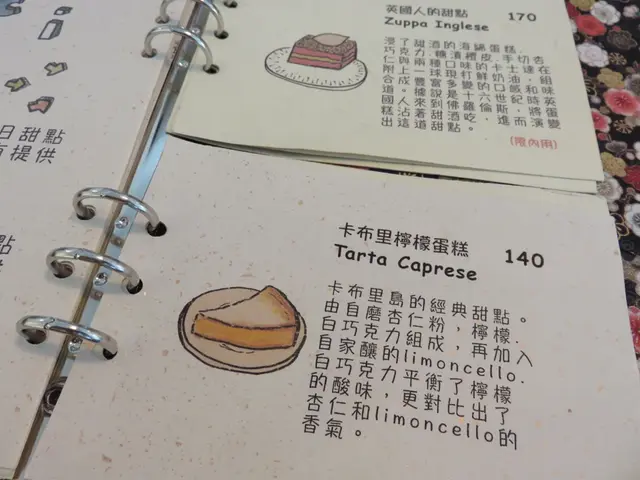 日甜點
有提供
點
英國人的甜點 170
Zuppa Inglese
浸了甜酒的海綿蛋糕,
巧克力,糖漬橙皮,手切杏
仁與兩種口味的卡士達
附上一球現打鮮奶油,
合成豐富多變的口感和味
道。據說是十六世紀時英
國人來到佛羅倫斯,將蛋
糕沾著甜酒吃,進而演變
出這道甜點。
(限內用)
卡布里檸檬蛋糕 140
Tarta Caprese
卡布里島的經典甜點。
由自磨杏仁粉,檸檬.
白巧克力組成,再加入
自家釀的limoncello.
白巧克力平衡了檸檬
的酸味,更對比出了
杏仁和limoncello的
香氣。